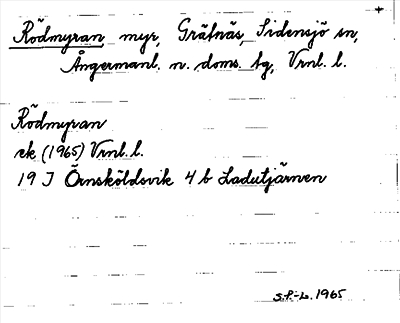 Rödmyran, myr, Grätnäs, Sidensjö sn,
Ångermanl. n. doms. tg, Vrnl. l.
Rödmyran
ek (1965) Vrnl. l.
19 J Örnsköldsvik 4 b Ladutjärnen
S.P.-L. 1965